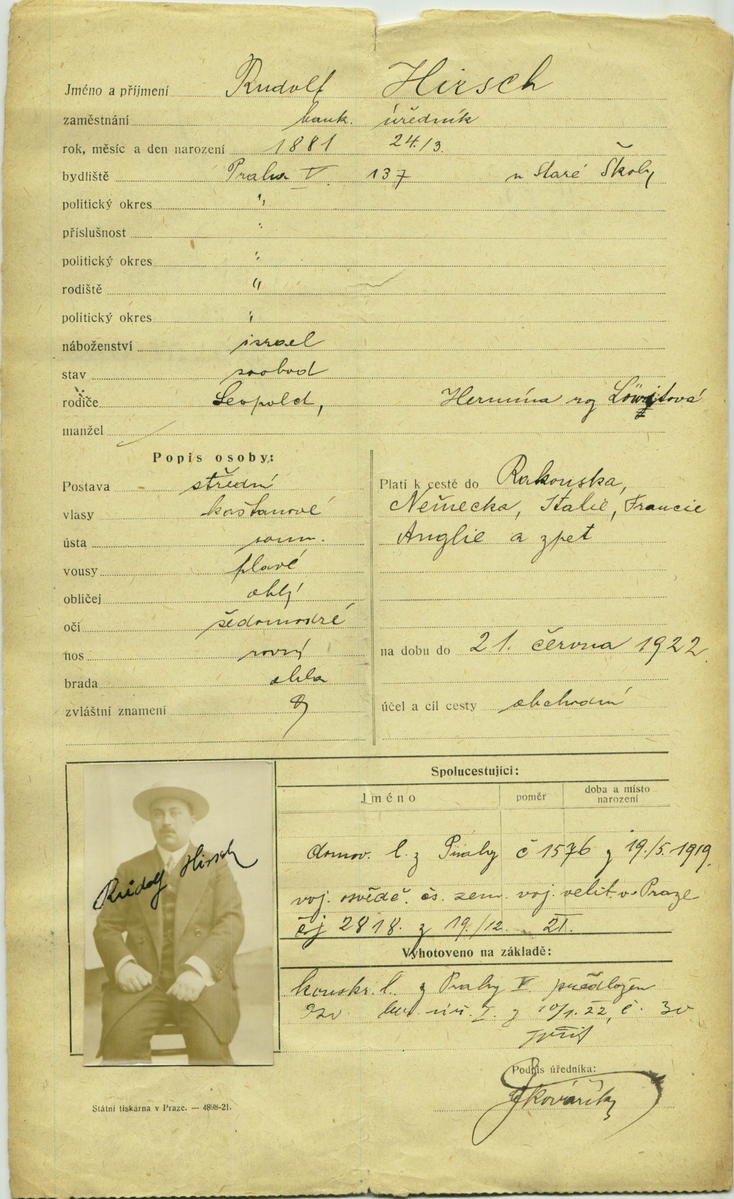 Jméno a příjmení Rudolf Hirsch
zaměstnání bank. úředník
rok, měsíc a den narození 1881 24./3.
bydliště Praha V 137 u Staré Školy
politický okres "
příslušnost "
politický okres "
rodiště "
politický okres "
náboženství israel
stav svobod
rodiče Leopold, Hermína roz Löwitová
manžel
Popis osoby:
Postava střední
vlasy kaštanové
ústa soum.
vousy plavé
obličej oblý
oči šedomodré
nos rovný
brada oblá
zvláštní znamení
Platí k cestě do Rakouska,
Německa, Italie, Francie
Anglie a zpět
na dobu do 21. června 1922.
účel a cíl cesty obchodní
Rudolf Hirsch
Spolucestující:
Jméno poměr doba a místo narození
domov. l. z Prahy č 1576 z 19./5. 1919.
voj. osvědč. čs. zem. voj. velit. v Praze
čj 2818. z 19./12. 21.
Vyhotoveno na základě:
konskr. l. z Prahy V předložen
z 10/1. 22, č. 30
Podpis úředníka:
Kovářík
Státní tiskárna v Praze. — 4898-21.